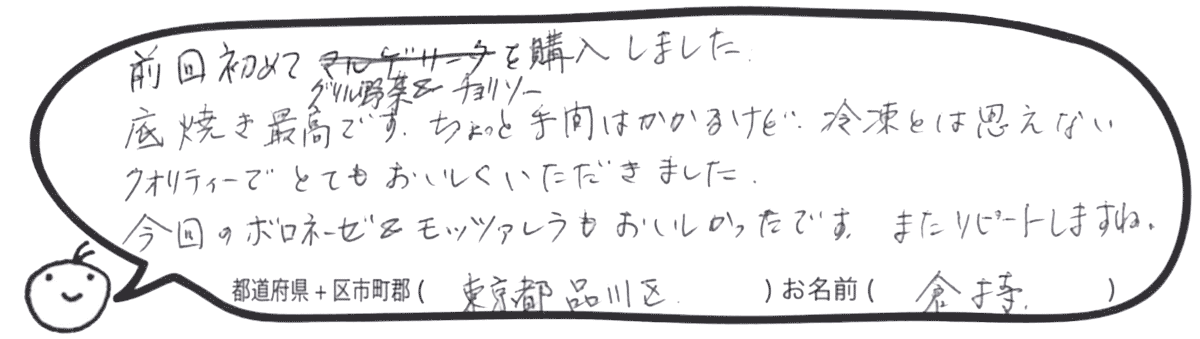 前回初めて マルゲリータを購入しました.
グリル野菜& チョリソー
底焼き最高です. ちょっと手間はかかるけど、冷凍とは思えない
クオリティーで とても おいしくいただきました.
今回の ボロネーゼ& モッツァレラも おいしかったです. またリピートしますね.
都道府県+区市町郡 ( 東京都 品川区. ) お名前 ( 倉持. )